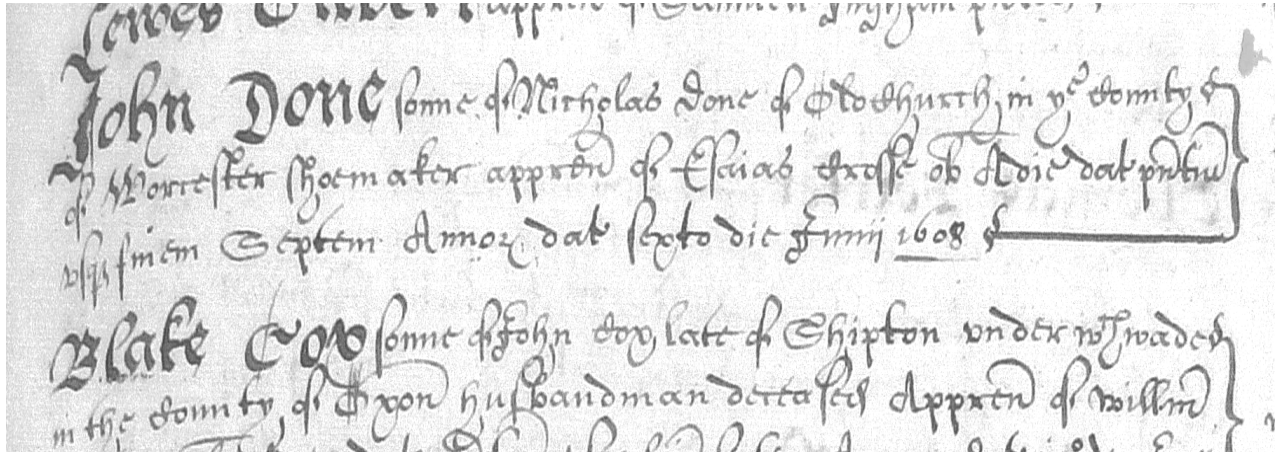 Lewes appren of Samuell
John Done sonne of Nicholas done of Oldchurch in ye County
of Worcester shoemaker appren of Esaias Crosse ob A die dat pntiu
usq finem Septem Annor dat sexto die Junij 1608
Blake Cox sonne of John Cox late of Shipton under whwade
in the County of Oxon husbandman deceased Appren of Willm